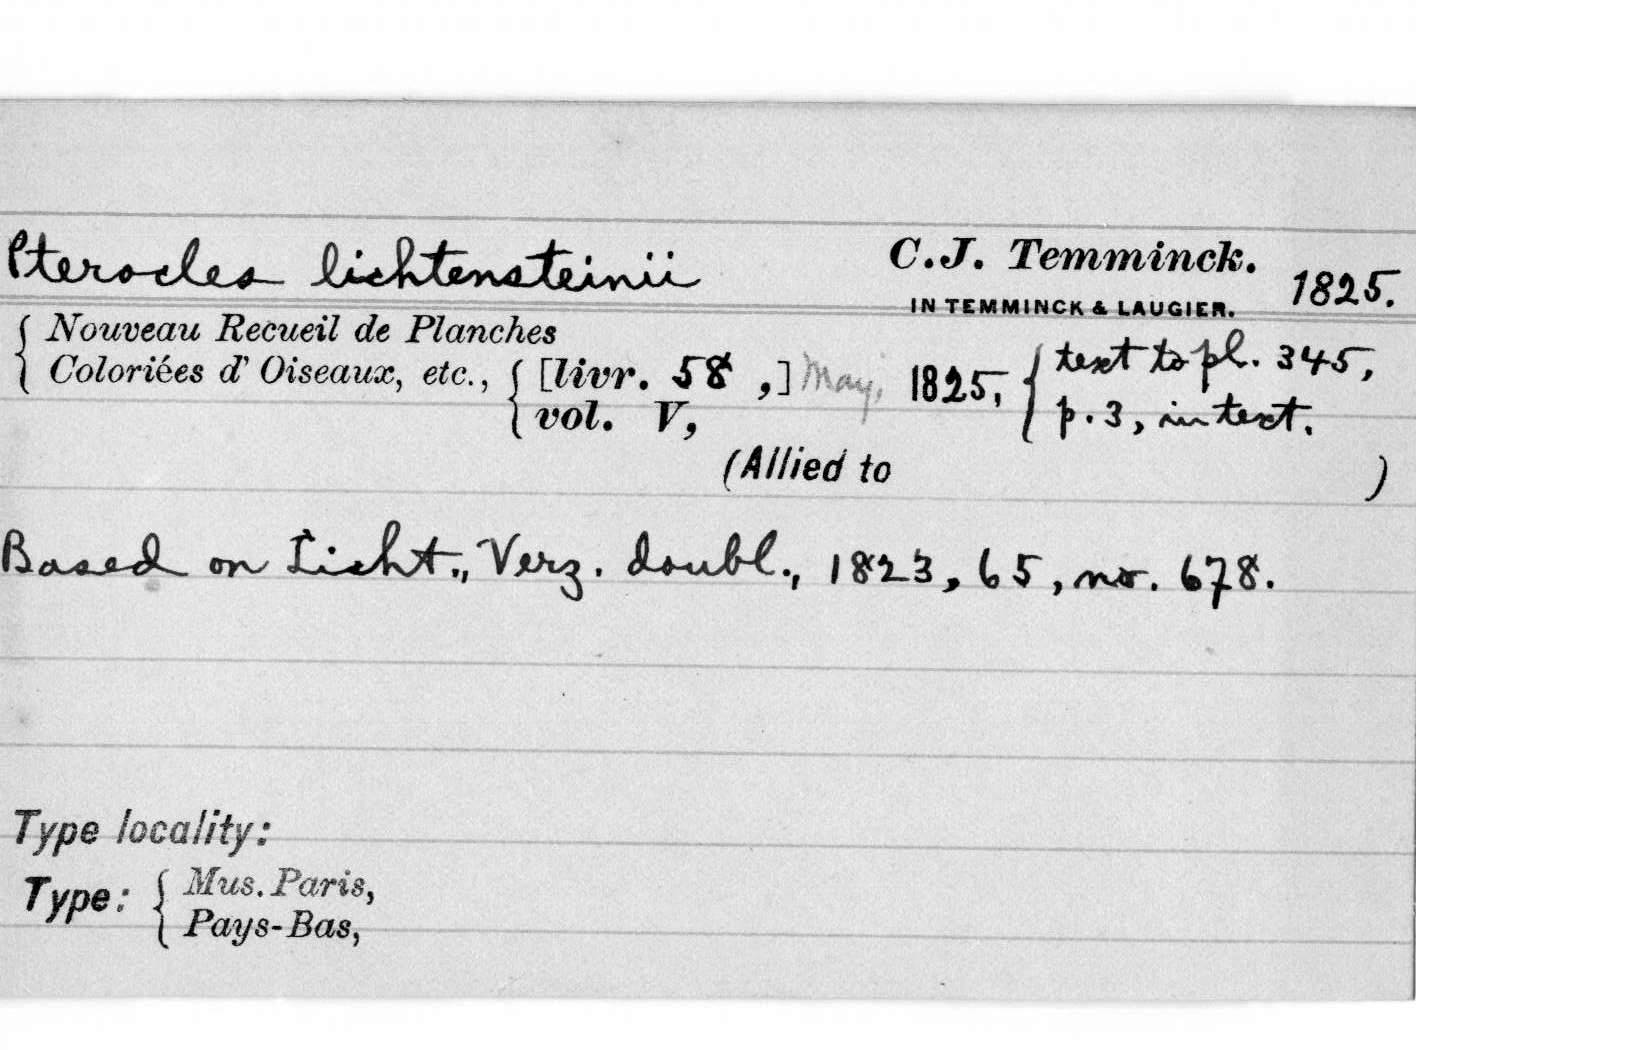 Pterocles lichtensteinii C.J. Temminck. 1825.
IN TEMMINCK & LAUGIER.
Nouveau Recueil de Planches
Coloriées d' Oiseaux, etc., [livr. 58 ,] May, 1825, text to pl. 345,
vol. V, p. 3, in text.
(Allied to )
Based on Licht., Verz. doubl., 1823, 65, no. 678.
Type locality:
Type: Mus. Paris,
Pays-Bas,